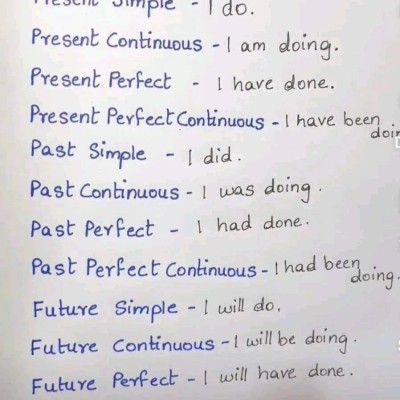 Present Simple - I do.
Present Continuous - I am doing.
Present Perfect - I have done.
Present Perfect Continuous - I have been
Past Simple - I did.
Past Continuous - I was doing.
Past Perfect - I had done.
Past Perfect Continuous - I had been
doing.
Future Simple - I will do.
Future Continuous - I will be doing.
Future Perfect - I will have done.